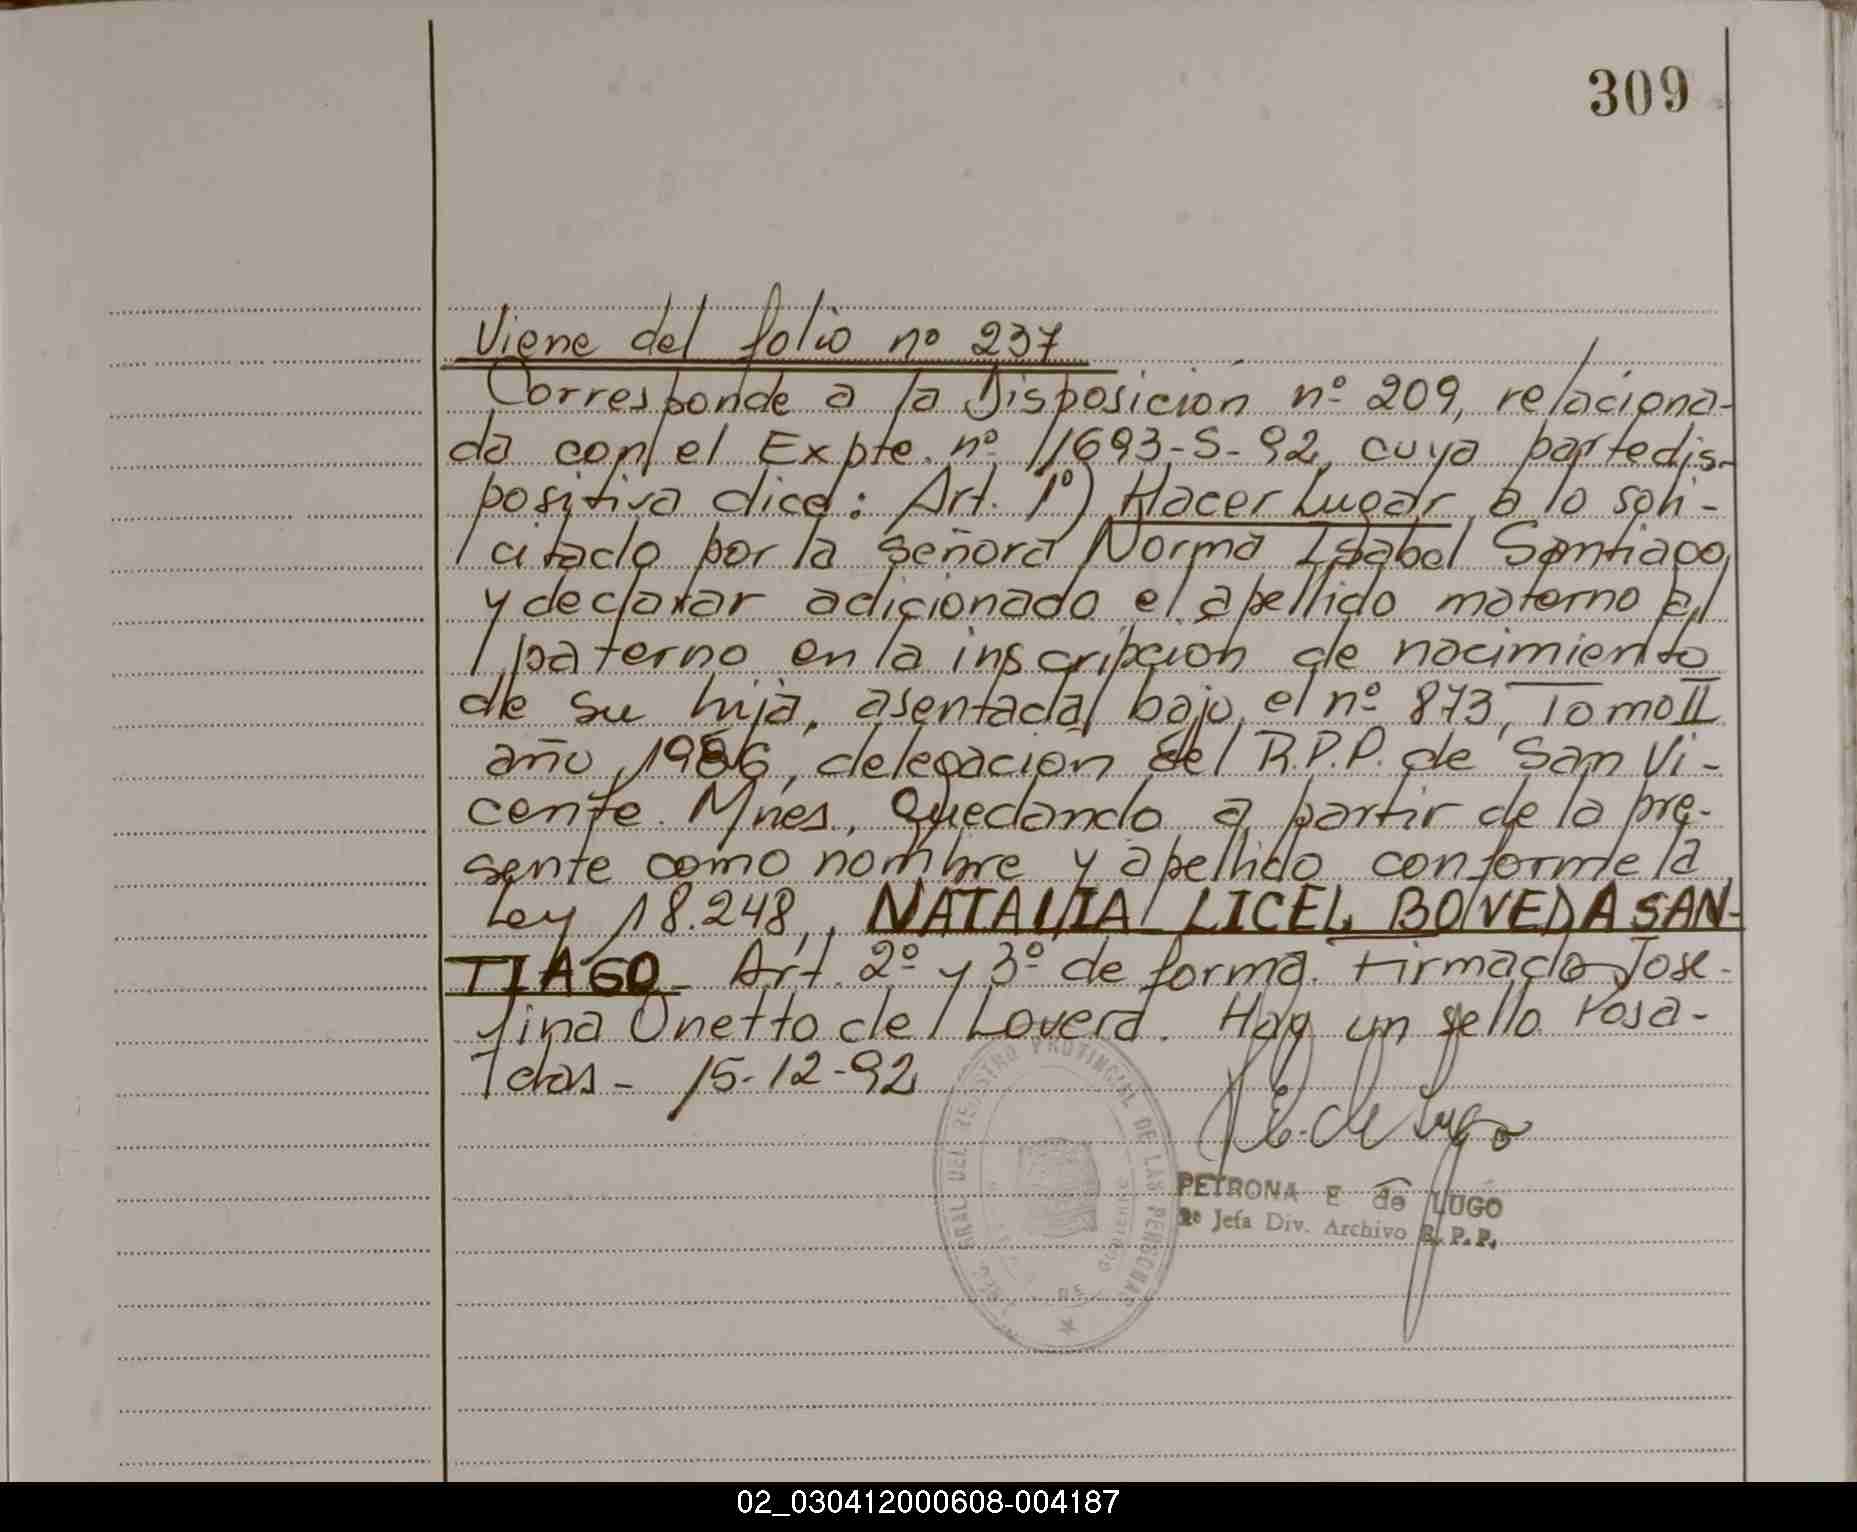 309
Viene del folio nº 237
Corresponde a la Disposición nº 209, relaciona-
da con el Expte. nº 11693-S-92, cuya parte dis-
positiva dice: Art. 1º) Hacer Lugar a lo soli-
citado por la señora Norma Isabel Santiago
y declarar adicionado el apellido materno al
paterno en la inscripción de nacimiento
de su hija, asentada bajo el nº 873, Tomo II
año 1986, delegación del R.P.P. de San Vi-
cente. Mnes., Quedando a partir de la pre-
sente como nombre y apellido conforme la
Ley 18.248, NATALIA LICEL BOVEDA SAN-
TIAGO - Art. 2º y 3º de forma. Firmado Jose-
fina Onetto de Lovera. Hay un sello Posa-
das - 15-12-92
GRAL DEL REGISTRO PROVINCIAL DE LAS PERSONAS
PETRONA E de LUGO
2º Jefa Div. Archivo R.P.P.
02_030412000608-004187